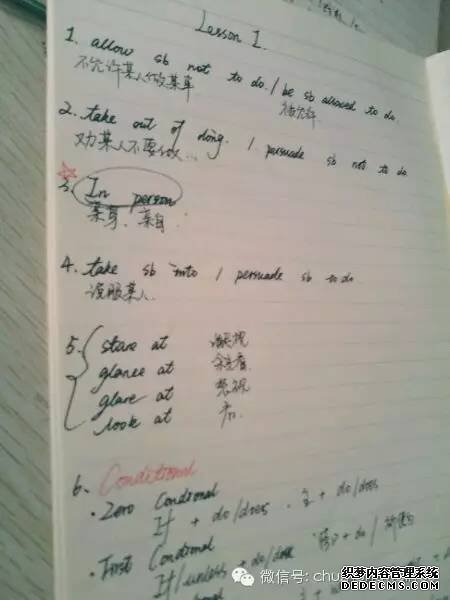 Lesson 1.
1. allow sb not to do. / be sb allowed to do
不允许某人做某事 被允许
2. take out of doing. / persuade sb not to do
劝某人不要做...
3. In person
亲身、亲自
4. take sb into / persuade sb to do
说服某人.
5. stare at 凝视
glance at
glare at 怒视
look at 看.
6. Conditional
·Zero Condronal
If + do/does . 主 + do/does
·First Condronal
If/unless + do/dose
微信号: chu
织梦内容管理系统
DEDECMS.COM